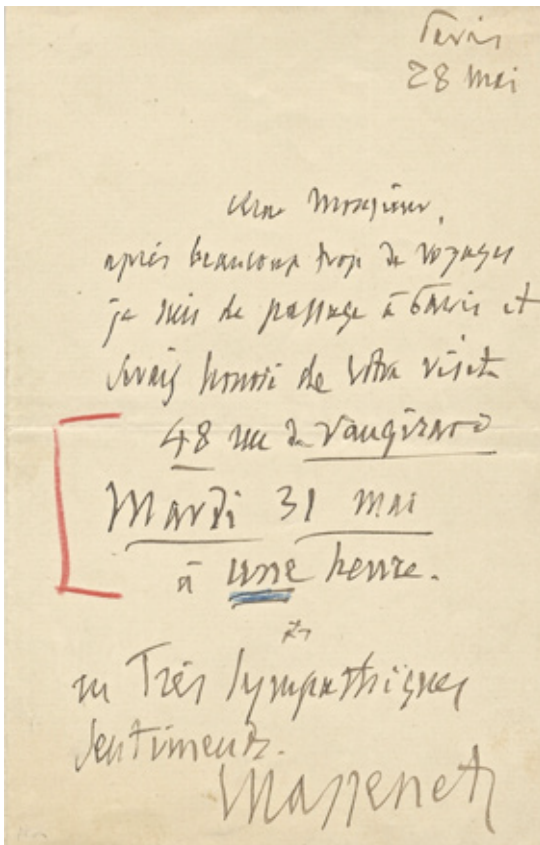 Paris
28 Mai
Monsieur,
après beaucoup trop de voyages
je suis de passage à Paris et
serais honoré de votre visite
48 rue de Vaugirard
Mardi 31 mai
à une heure.
Très sympathiques
sentiments.
Massenet